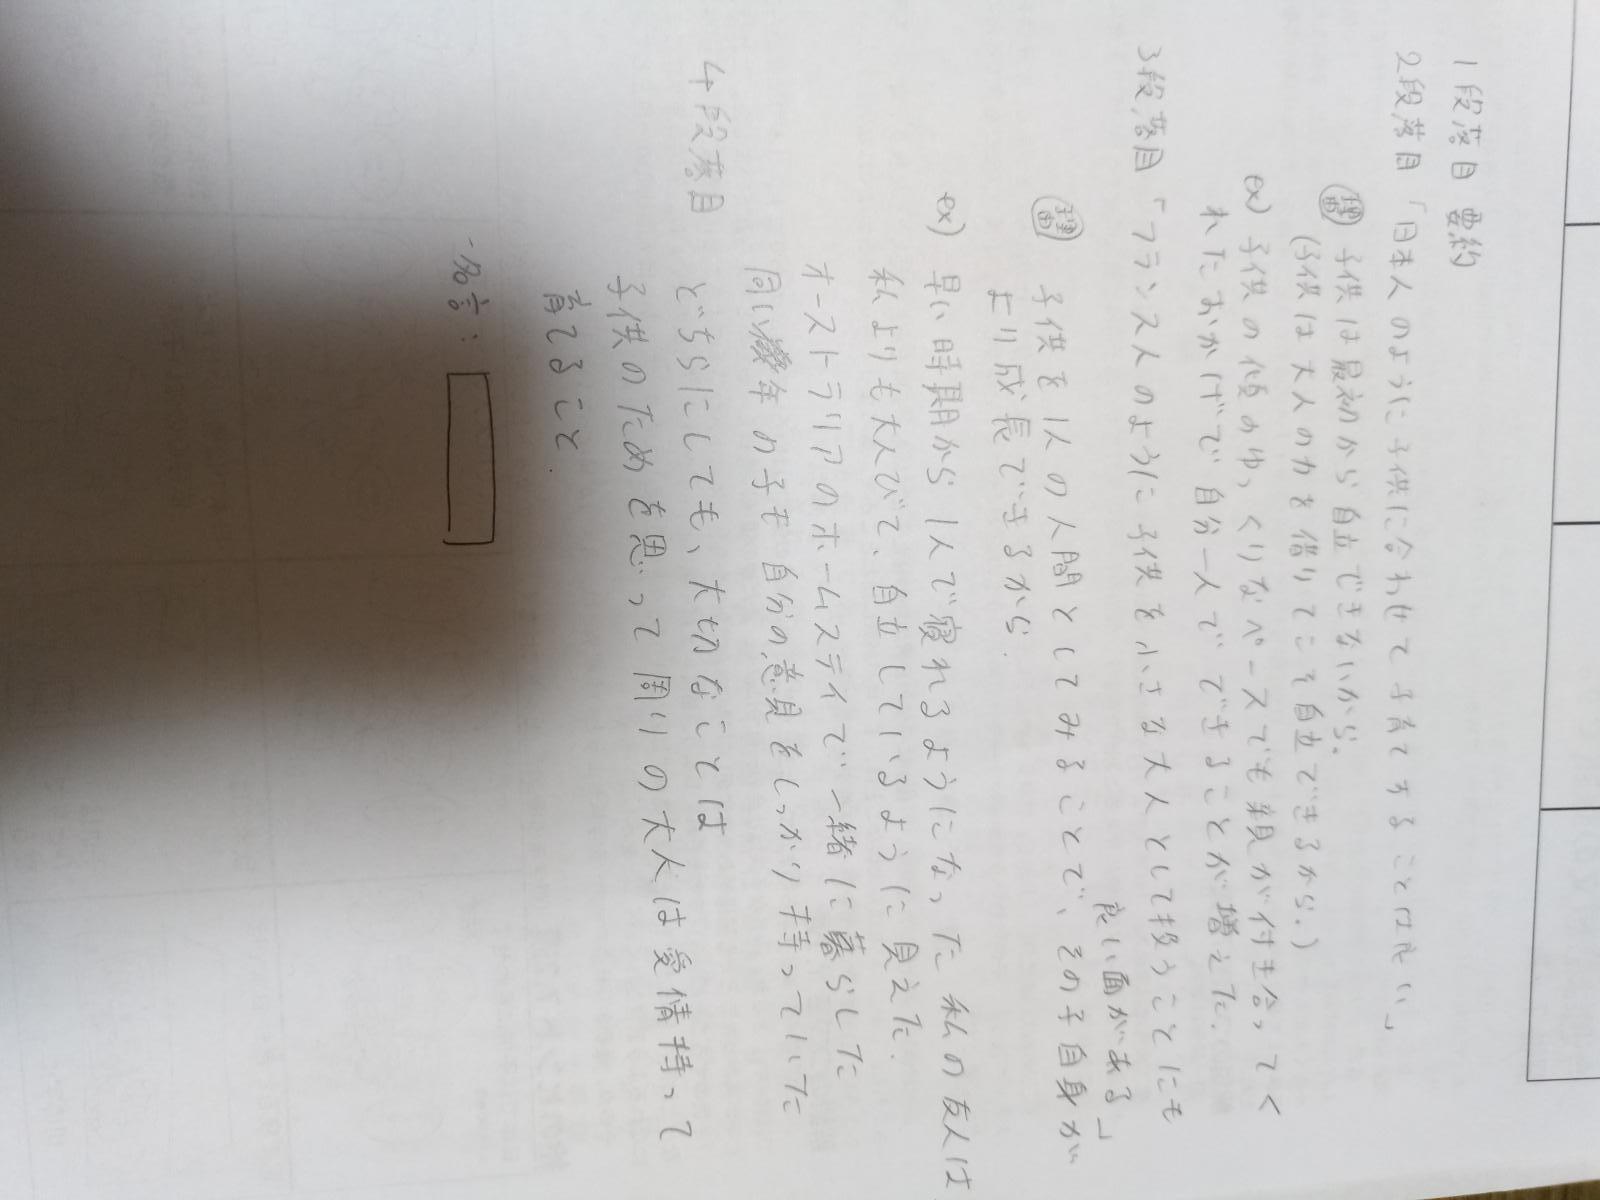 1段落目 要約
2段落目 「日本人のように子供に合わせて子育てすることは良い」
理由 子供は最初から自立できないから.
(子供は大人の力を借りてこそ自立できるから.)
ex) 子供の頃のゆっくりなペースでも親が付き合ってく
れたおかげで自分一人でできることが増えた.
3段落目 「フランス人のように子供を小さな大人として扱うことにも
良い面がある」
理由 子供を1人の人間としてみることで、その子自身が
より成長できるから.
ex) 早い時期から1人で寝れるようになった私の友人は
私よりも大人びて、自立しているように見えた.
オーストラリアのホームステイで一緒に暮らした
同い年の子も自分の意見をしっかり持っていた
4段落目 どちらにしても、大切なことは
子供のためを思って周りの大人は愛情持って
育てること.
・名言: